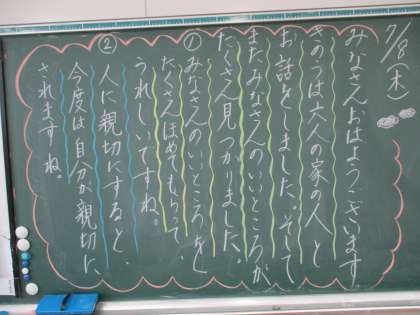 7/8(木)
みなさんおはようございます。
きのうは六人の家の人と
お話をしました。そして
またみなさんのいいところが
たくさん見つかりました。
①みなさんのいいところをし
たくさんほめてもらって、
うれしいですね。
②人に親切にすると、
今度は自分が親切に、
されますね。